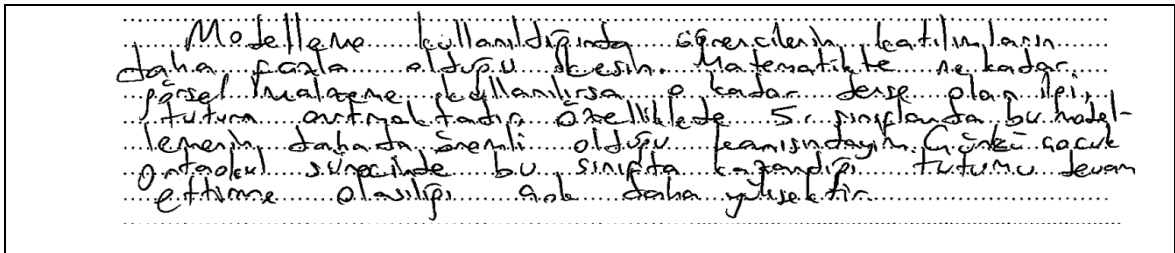 Modelleme kullanıldığında öğrencilerin katılımların
daha fazla olduğu kesin. Matematikte ne kadar
görsel malzeme kullanılırsa o kadar derse olan ilgi,
tutum artmaktadır. Özelliklede 5. sınıflarda bu model-
lemenin dahada önemli olduğu kanısındayım. Çünkü çocuk
Ortaokul sürecinde bu sınıfta kazandığı tutumu devam
ettirme olasılığı çok daha yüksektir.